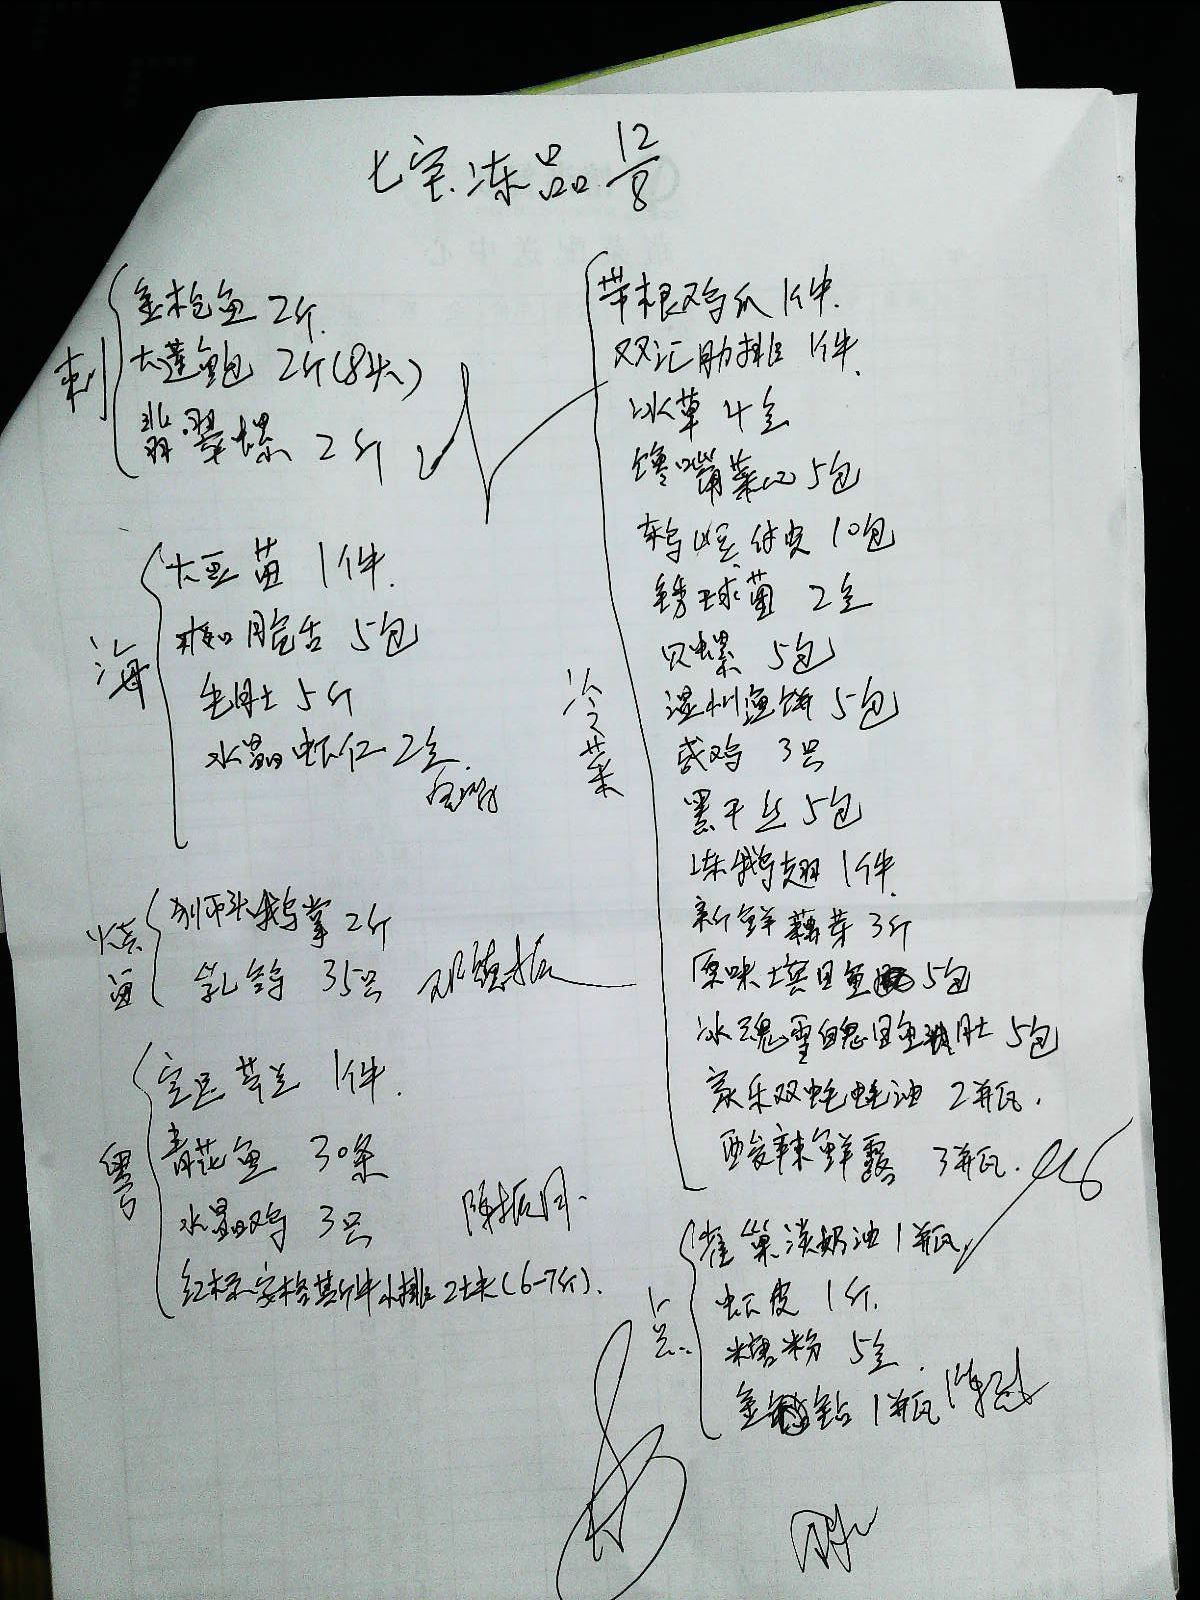 七宝冻品 12/8
刺
金枪鱼 2斤
大莲鲍 2斤(8头)
翡翠螺 2斤
海
大豆苗 1件
椒 5包
毛肚 5斤
水晶虾仁 2盒
烧
狮头鹅掌 2斤
乳鸽 35只 邓德振
粤
1件
青花鱼 30条
水晶鸡 3只 陈振国
红标安格斯仔牛小排 2块(6-7斤)
冷菜
带根鸡爪 1件
双汇肋排 1件
冰草 4盒
馋嘴菜心 5包
10包
绣球菌 2盒
贝螺 5包
温州渔饼 5包
咸鸡 3只
黑干丝 5包
冻鹅翅 1件
新鲜藕芽 3斤
原味墨鱼 5包
冰魂雪魄 5包
家乐双蚝蚝油 2瓶
酸辣鲜露 3瓶
点
雀巢淡奶油 1瓶
虾皮 1斤
糖粉 5盒
金钻 1瓶